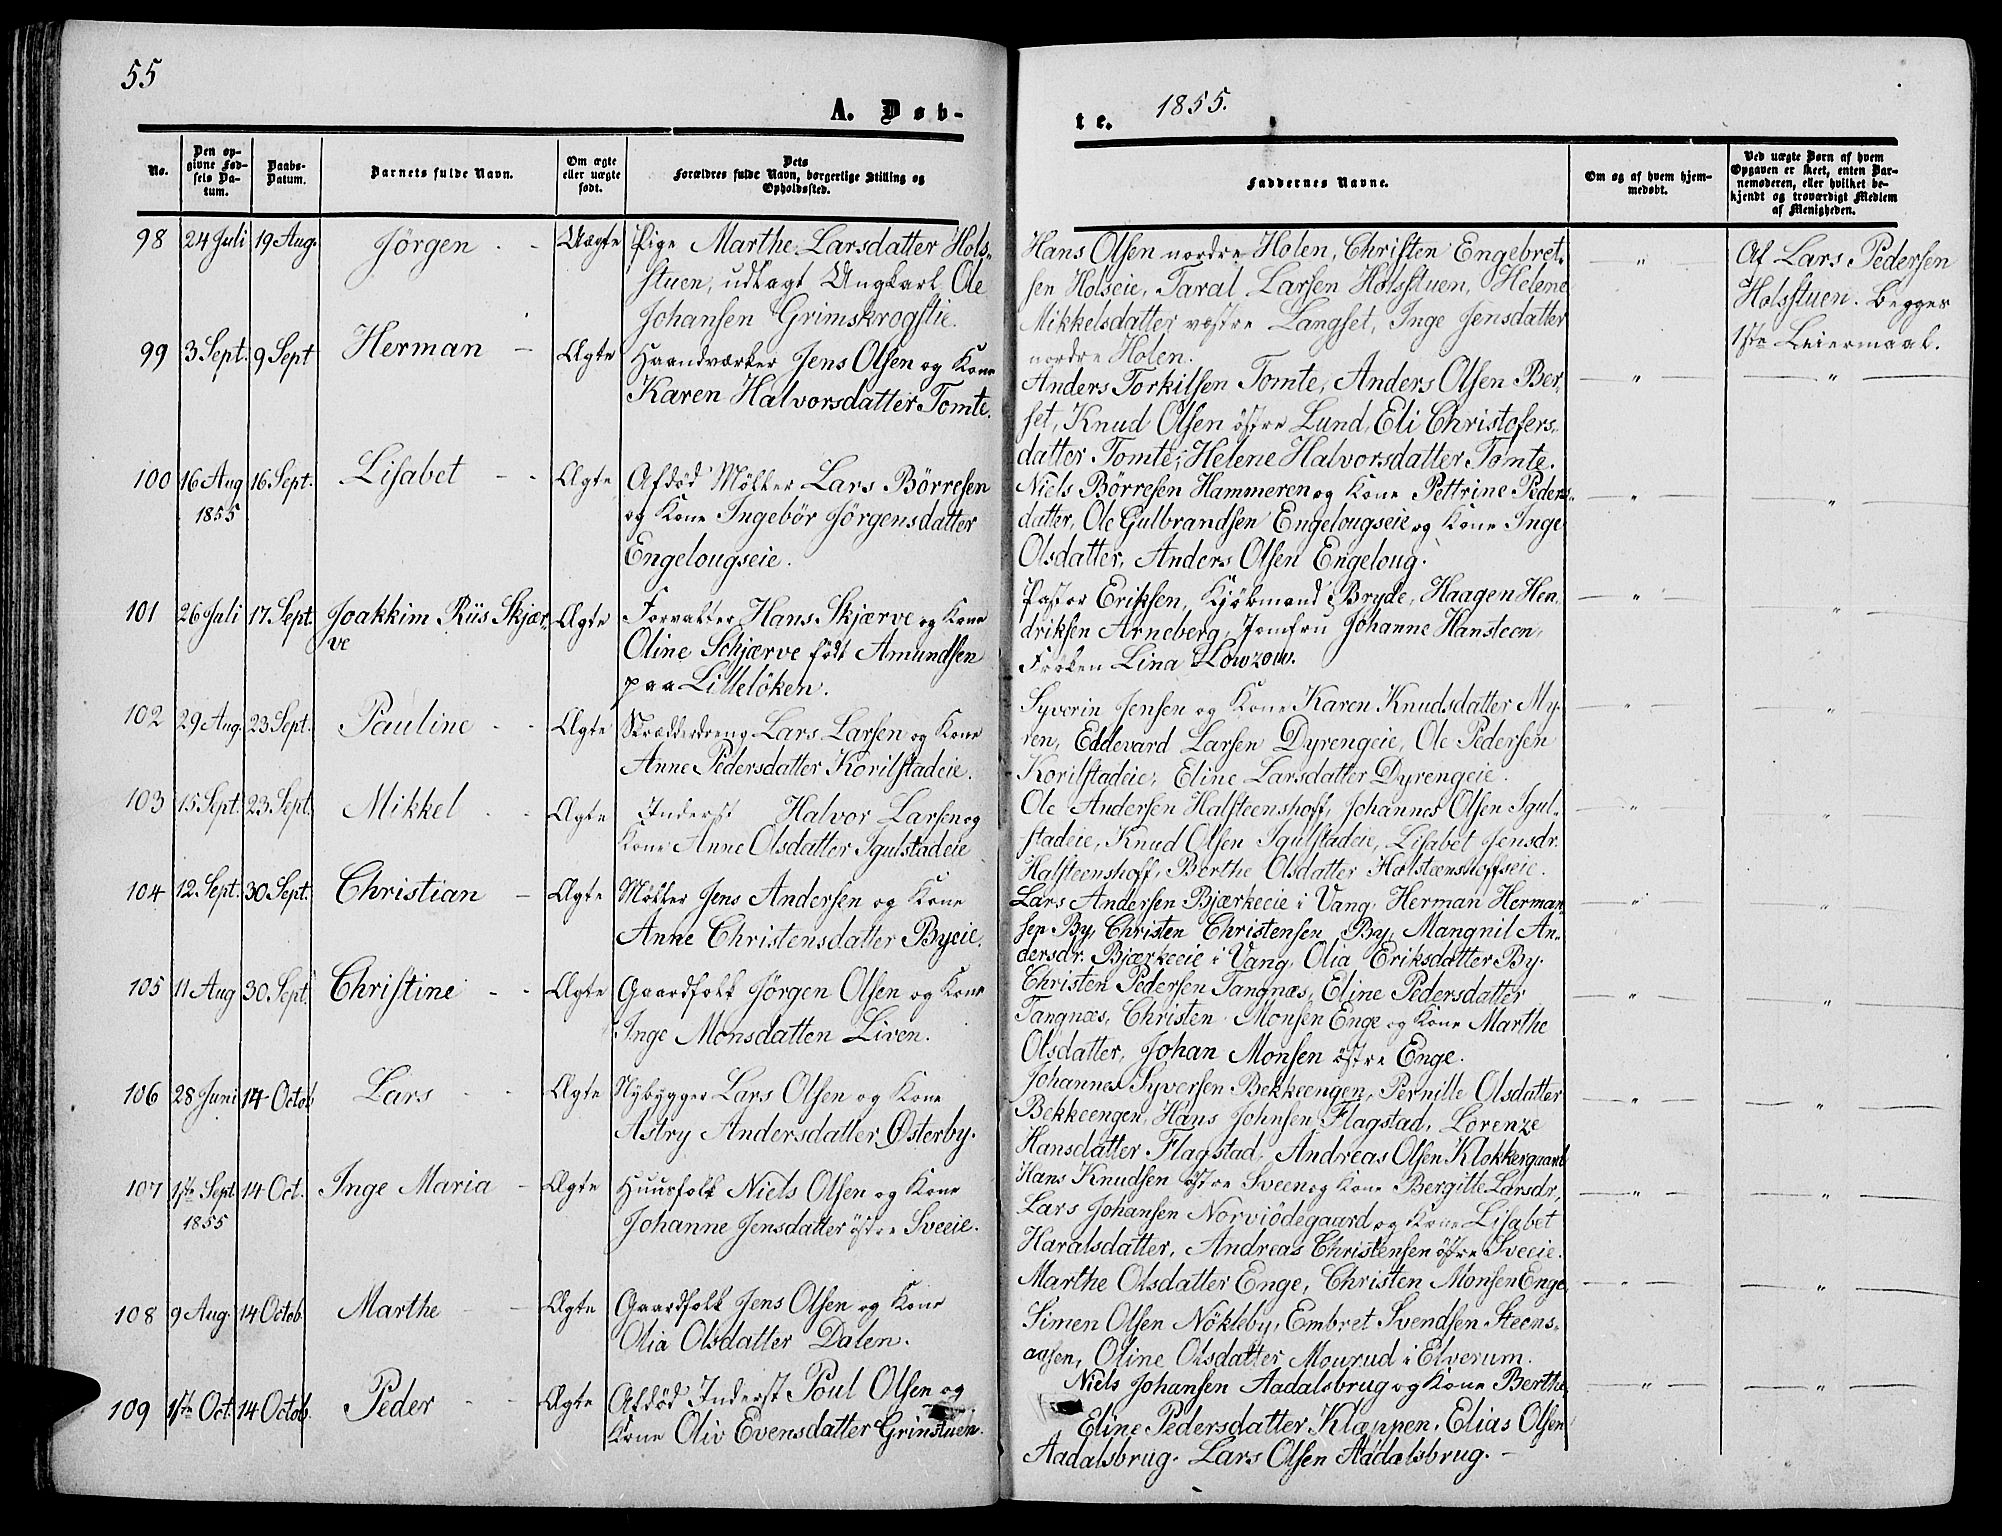 55
A. Døb-
No.
Den op-
givne Fød-
sels Da-
tum.
Daabs-
Datum.
Barnets fulde Navn.
Om ægte
eller uægte
født.
Dets
Forældres fulde Navn, borgerlige Stilling og
Opholdssted.
98 24 Juli 19 Aug. Jörgen - - Uægte Pige Marthe Larsdatter Hols-
stuen, udlagt Ungkarl Ole
Johansen Grimskrogstie.
99 3 Sept. 9 Sept Herman - Ægte Haandværker Jens Olsen og Kone
Karen Halvorsdatter Tomte.
100 16 Aug 16 Sept. Lisabet - - Ægte Afdød Möller Lars Börresen
1855 og Kone Ingebör Jörgensdatter
Engelougseie.
101 26 Juli 17 Sept. Joakkim Riis Skjær- Ægte Forvalter Hans Skjærve og Kone
ve Oline Schjærve født Amundsen
paa Lilleløken.
102 29 Aug. 23 Sept. Pauline - - Ægte Skrædderdreng Lars Larsen og Kone
Anne Pedersdatter Korilstadeie.
103 15 Sept. 23 Sept. Mikkel - - Ægte Inderst Halvor Larsen og
Kone Anne Olsdatter Igulstadeie
104 12 Sept. 30 Sept. Christian - Ægte Möller Jens Andersen og Kone
Anne Christensdatter Byeie.
105 11 Aug 30 Sept. Christine - - Ægte Gaardfolk Jörgen Olsen og Kone
Inge Monsdatten Liven.
106 28 Juni 14 Octob Lars - - Ægte Nybygger Lars Olsen og Kone
Astry Andersdatter Østerby.
107 1ste Sept 14 Oct. Inge Maria - Ægte Huusfolk Niels Olsen og Kone
1855 Johanne Jensdatter östre Sveeie.
108 9 Aug. 14 Octob. Marthe - - Ægte Gaardfolk Jens Olsen og Kone
Olia Olsdatter Dalen.
109 1ste Oct. 14 Octob. Peder - - Ægte Afdød Inderst Poul Olsen og
Kone Oliv Evensdatter Grinstuen.
te. 1855.
Faddernes Navne.
Om og af hvem hjem-
medøbt.
Ved uægte Børn af hvem
Opgaven er skeet, enten Bar-
nemoderen, eller hvilket be-
kjendt og troværdigt Medlem
af Menigheden.
Hans Olsen nordre Holen, Christen Engebret- — " — Af Lars Pedersen
sen Holseie, Taral Larsen Holsstuen, Helene Holsstuen. Begges
Mikkelsdatter vestre Langset, Inge Jensdatter 1ste Leiermaal.
nordre Holen.
Anders Torkilsen Tomte, Anders Olsen Ber- — " — — " —
set, Knud Olsen östre Lund, Eli Christofers-
datter Tomte, Helene Halvorsdatter Tomte.
Niels Börresen Hammeren og Kone Pettrine Peders- — " — — " —
datter, Ole Gulbrandsen Engelougseie og Kone Inge
Olsdatter, Anders Olsen Engeloug.
Pastor Eriksen, Kjöbmand Bryde, Haagen Hen- — " — — " —
driksen Arneberg, Jomfru Johanne Hansteen,
Fröken Lina Lowzow.
Syverin Jensen og Kone Karen Knudsdatter My- — " — — " —
ren, Eddevard Larsen Dyrengeie, Ole Pedersen
Korilstadeie, Eline Larsdatter Dyrengeie.
Ole Andersen Halsteenshoff, Johannes Olsen Igul- — " — — " —
stadeie, Knud Olsen Igulstadeie, Lisabet Jensdr.
Halsteenshoff, Berthe Olsdatter Halstænshoffseie.
Lars Andersen Bjærkeeie i Vang, Herman Herman- — " — — " —
sen By, Christen Christensen By, Mangnil An-
dersdr. Bjærkeeie i Vang, Olia Eriksdatter By.
Christen Pedersen Tangnæs, Eline Pedersdatter — " — — " —
Tangnæs, Christen Monsen Enge og Kone Marthe
Olsdatter, Johan Monsen östre Enge.
Johannes Syversen Bekkeengen, Pernille Olsdatter — " — — " —
Bekkeengen, Hans Johnsen Flagstad, Lorenze
Hansdatter Flagstad, Andreas Olsen Klokkergaard
Hans Knudsen östre Sveen og Kone Bergitte Larsdr, — " — — " —
Lars Johansen Norviödegaard og Kone Lisabet
Haralsdatter, Andreas Christensen östre Sveeie.
Marthe Olsdatter Enge, Christen Monsen Enge, — " — — " —
Simen Olsen Nökleby, Embret Svendsen Steens-
aasen, Oline Olsdatter Mourud i Elverum.
Niels Johansen Aadalsbrug og Kone Berthe — " — — " —
Eline Pedersdatter Klæppen, Elias Olsen
Aadalsbrug. Lars Olsen Aadalsbrug. -